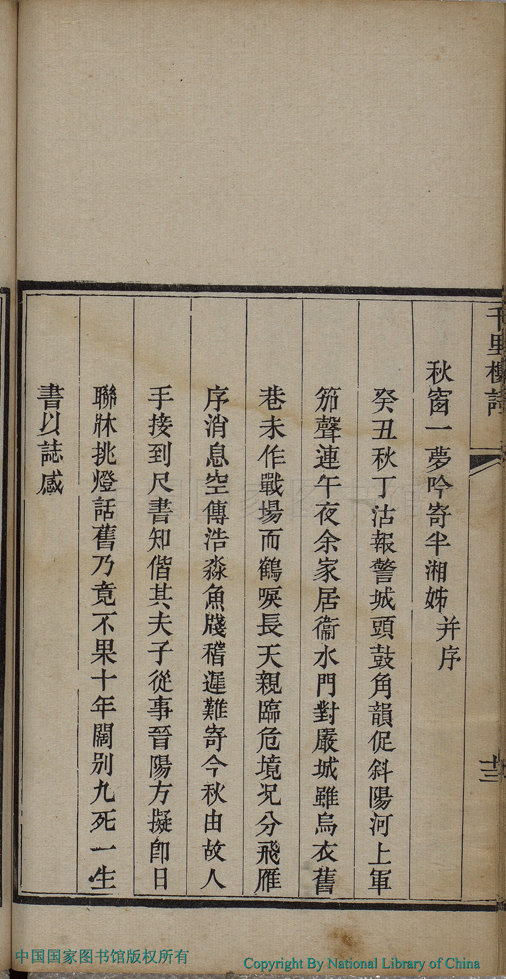 千里樓詩
秋窗一夢吟寄半湘姊 并序
癸丑秋丁沽報警城頭鼓角韻促斜陽河上軍
笳聲連午夜余家居衞水門對嚴城雖烏衣舊
巷未作戰場而鶴唳長天親臨危境况分飛雁
序消息空傳浩淼魚牋稽遲難寄今秋由故人
手接到尺書知偕其夫子從事晉陽方擬卽日
聯牀挑燈話舊乃竟不果十年闊别九死一生
書以誌感
中国国家图书馆版权所有
Copyright By National Library of China